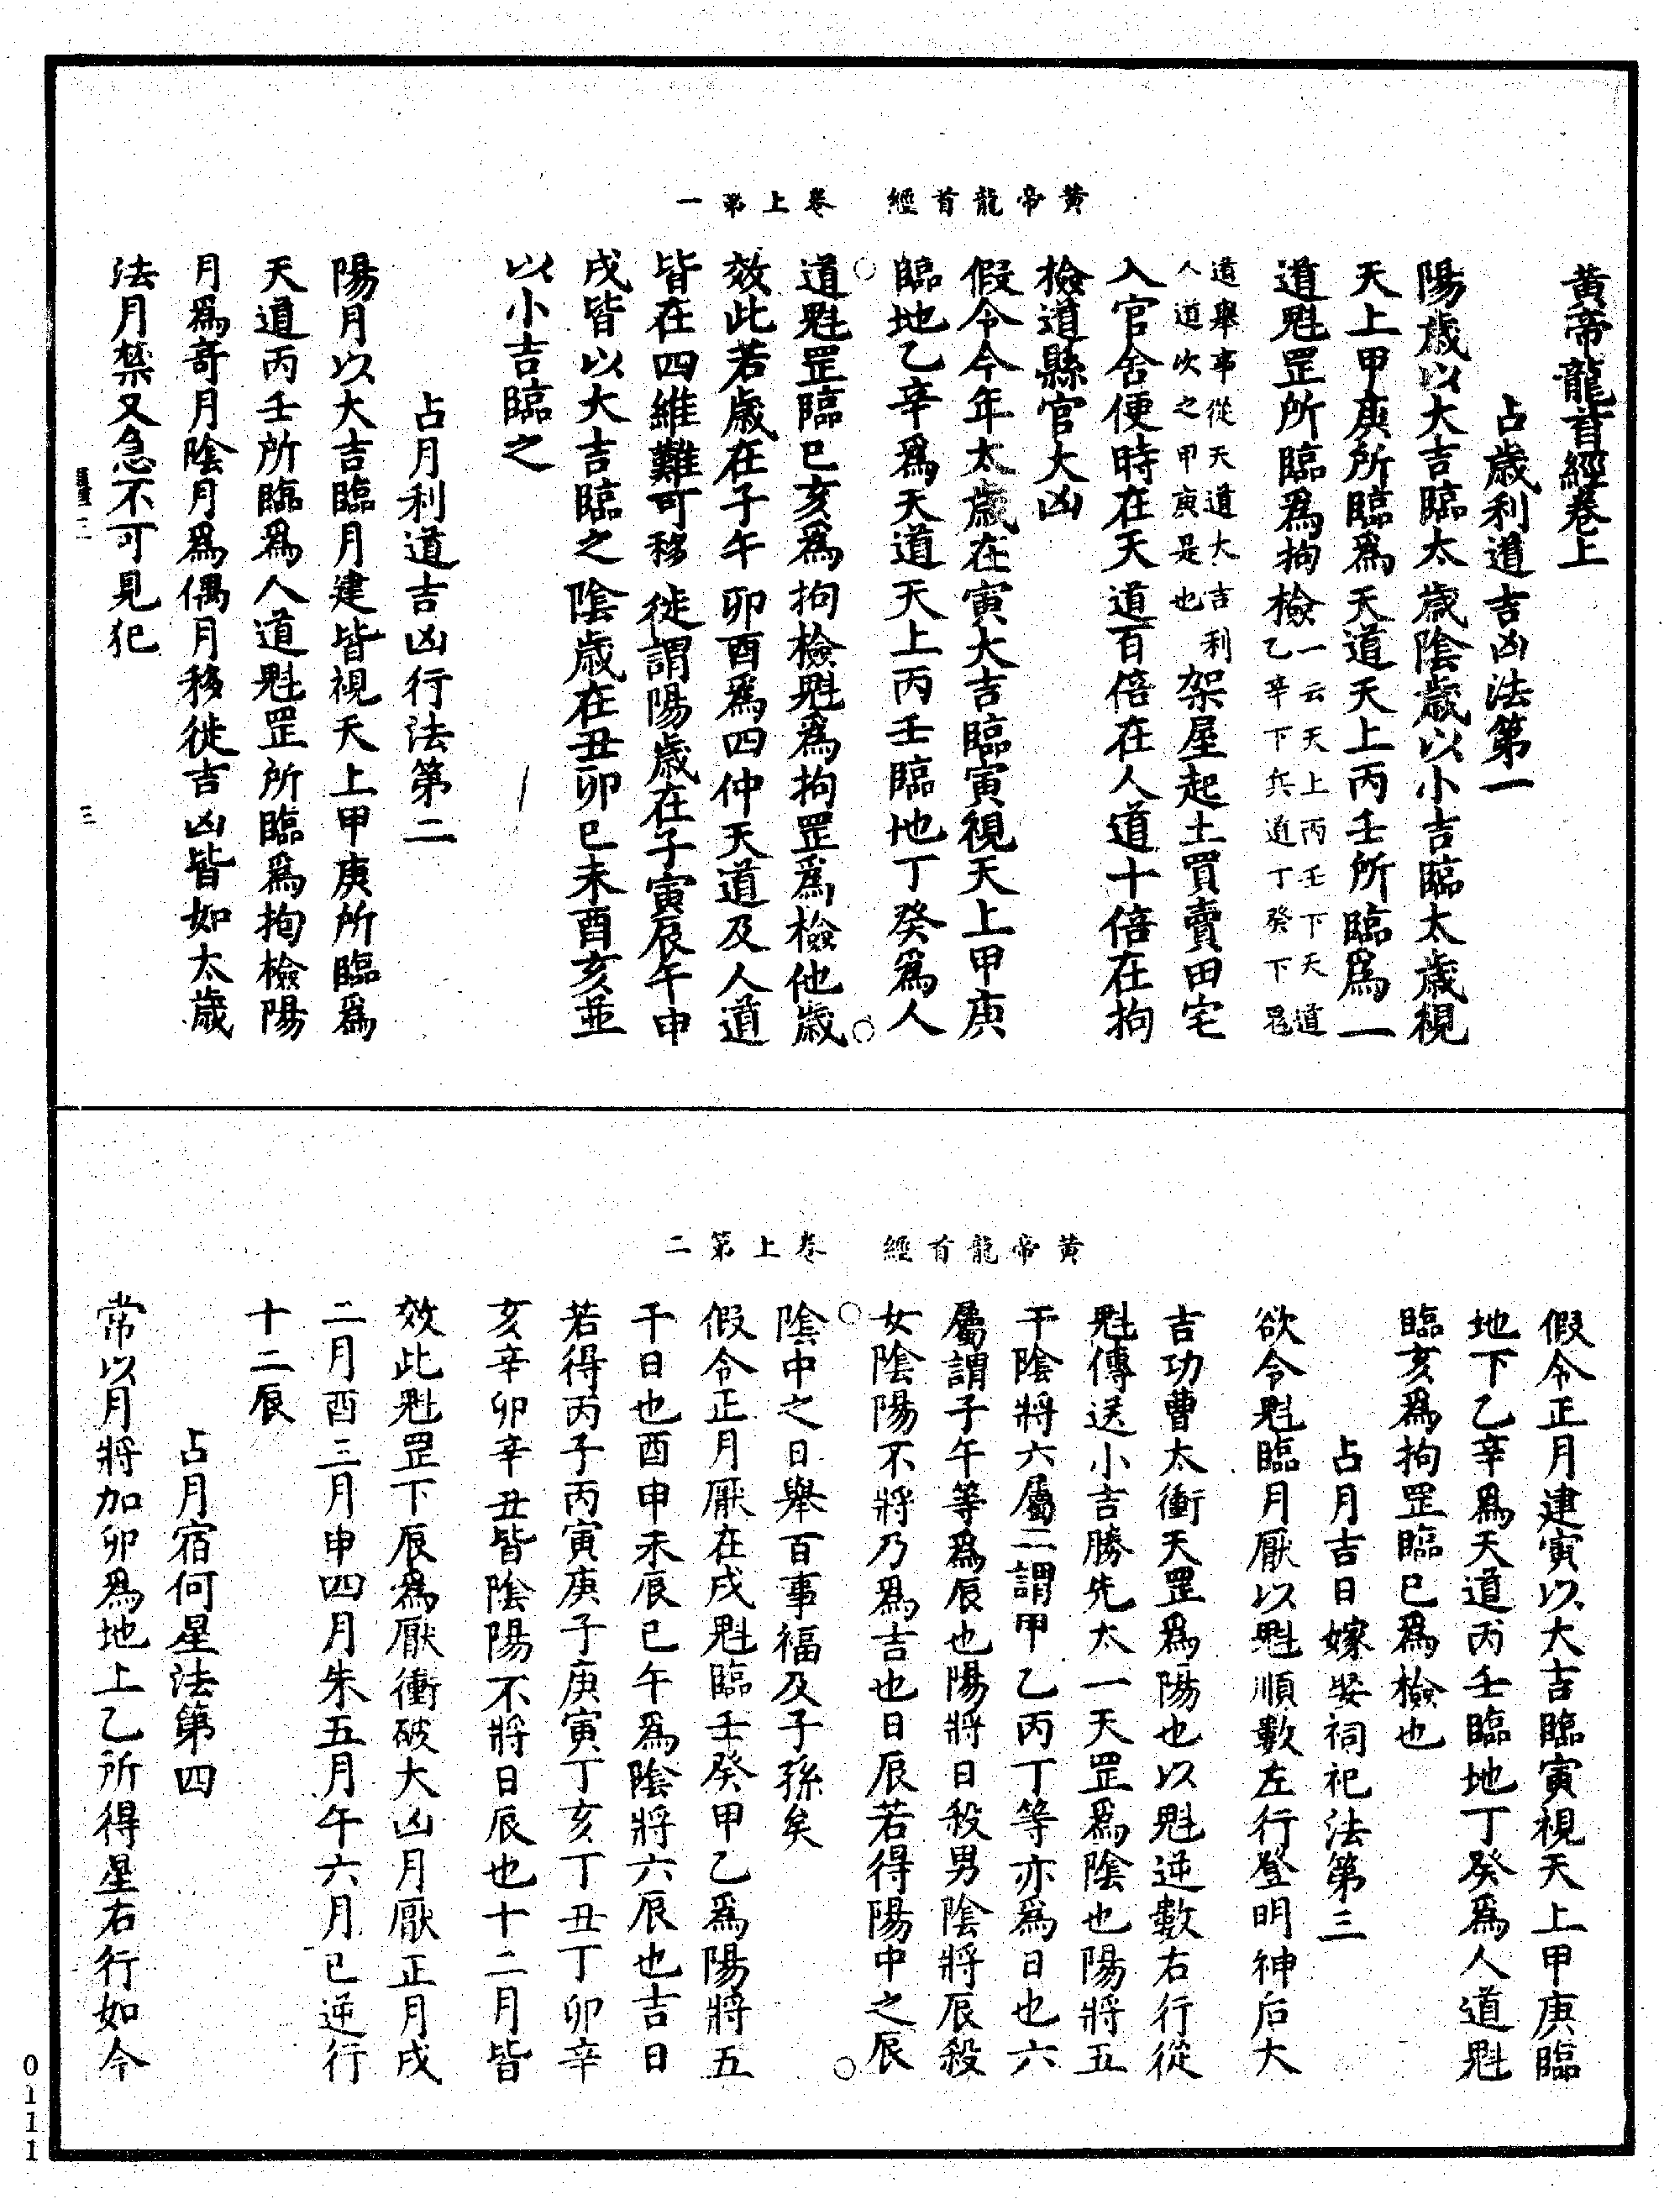 黃帝龍首經卷上
占歲利道吉凶法第一
陽歲以大吉臨太歲陰歲以小吉臨太歲視
天上甲庚所臨爲天道天上丙壬所臨爲一
道魁罡所臨爲拘檢一云天上丙壬下天道
乙辛下兵道丁癸下
道舉事從天道大吉利
人道次之甲庚是也架屋起土買賣田宅
入官舍便時在天道百倍在人道十倍在拘
檢道縣官大凶
假令今年太歲在寅大吉臨寅視天上甲庚
臨地乙辛爲天道天上丙壬臨地丁癸爲人
道魁罡臨巳亥爲拘檢魁爲拘罡爲檢他歲
效此若歲在子午卯酉爲四仲天道及人道
皆在四維難可移徙謂陽歲在子寅辰午申
戌皆以大吉臨之陰歲在丑卯巳未酉亥並
以小吉臨之
占月利道吉凶行法第二
陽月以大吉臨月建皆視天上甲庚所臨爲
天道丙壬所臨爲人道魁罡所臨爲拘檢陽
月爲奇月陰月爲偶月移徙吉凶皆如太歲
法月禁又急不可見犯
黃帝龍首經 卷上第一
三
假令正月建寅以大吉臨寅視天上甲庚臨
地下乙辛爲天道丙壬臨地丁癸爲人道魁
臨亥爲拘罡臨巳爲檢也
占月吉日嫁娶祠祀法第三
欲令魁臨月厭以魁順數左行登明神后大
吉功曹太衝天罡爲陽也以魁逆數右行從
魁傳送小吉勝先太一天罡爲陰也陽將五
干陰將六屬二謂甲乙丙丁等亦爲日也六
屬謂子午等爲辰也陽將日殺男陰將辰殺
女陰陽不將乃爲吉也日辰若得陽中之辰
陰中之日舉百事福及子孫矣
假令正月厭在戌魁臨壬癸甲乙爲陽將五
干日也酉申未辰巳午爲陰將六辰也吉日
若得丙子丙寅庚子庚寅丁亥丁丑丁卯辛
亥辛卯辛丑皆陰陽不將日辰也十二月皆
效此魁罡下辰爲厭衝破大凶月厭正月戌
二月酉三月申四月朱五月午六月巳逆行
十二辰
占月宿何星法第四
常以月將加卯爲地上乙所得星右行如今
黃帝龍首經 卷上第二
0111